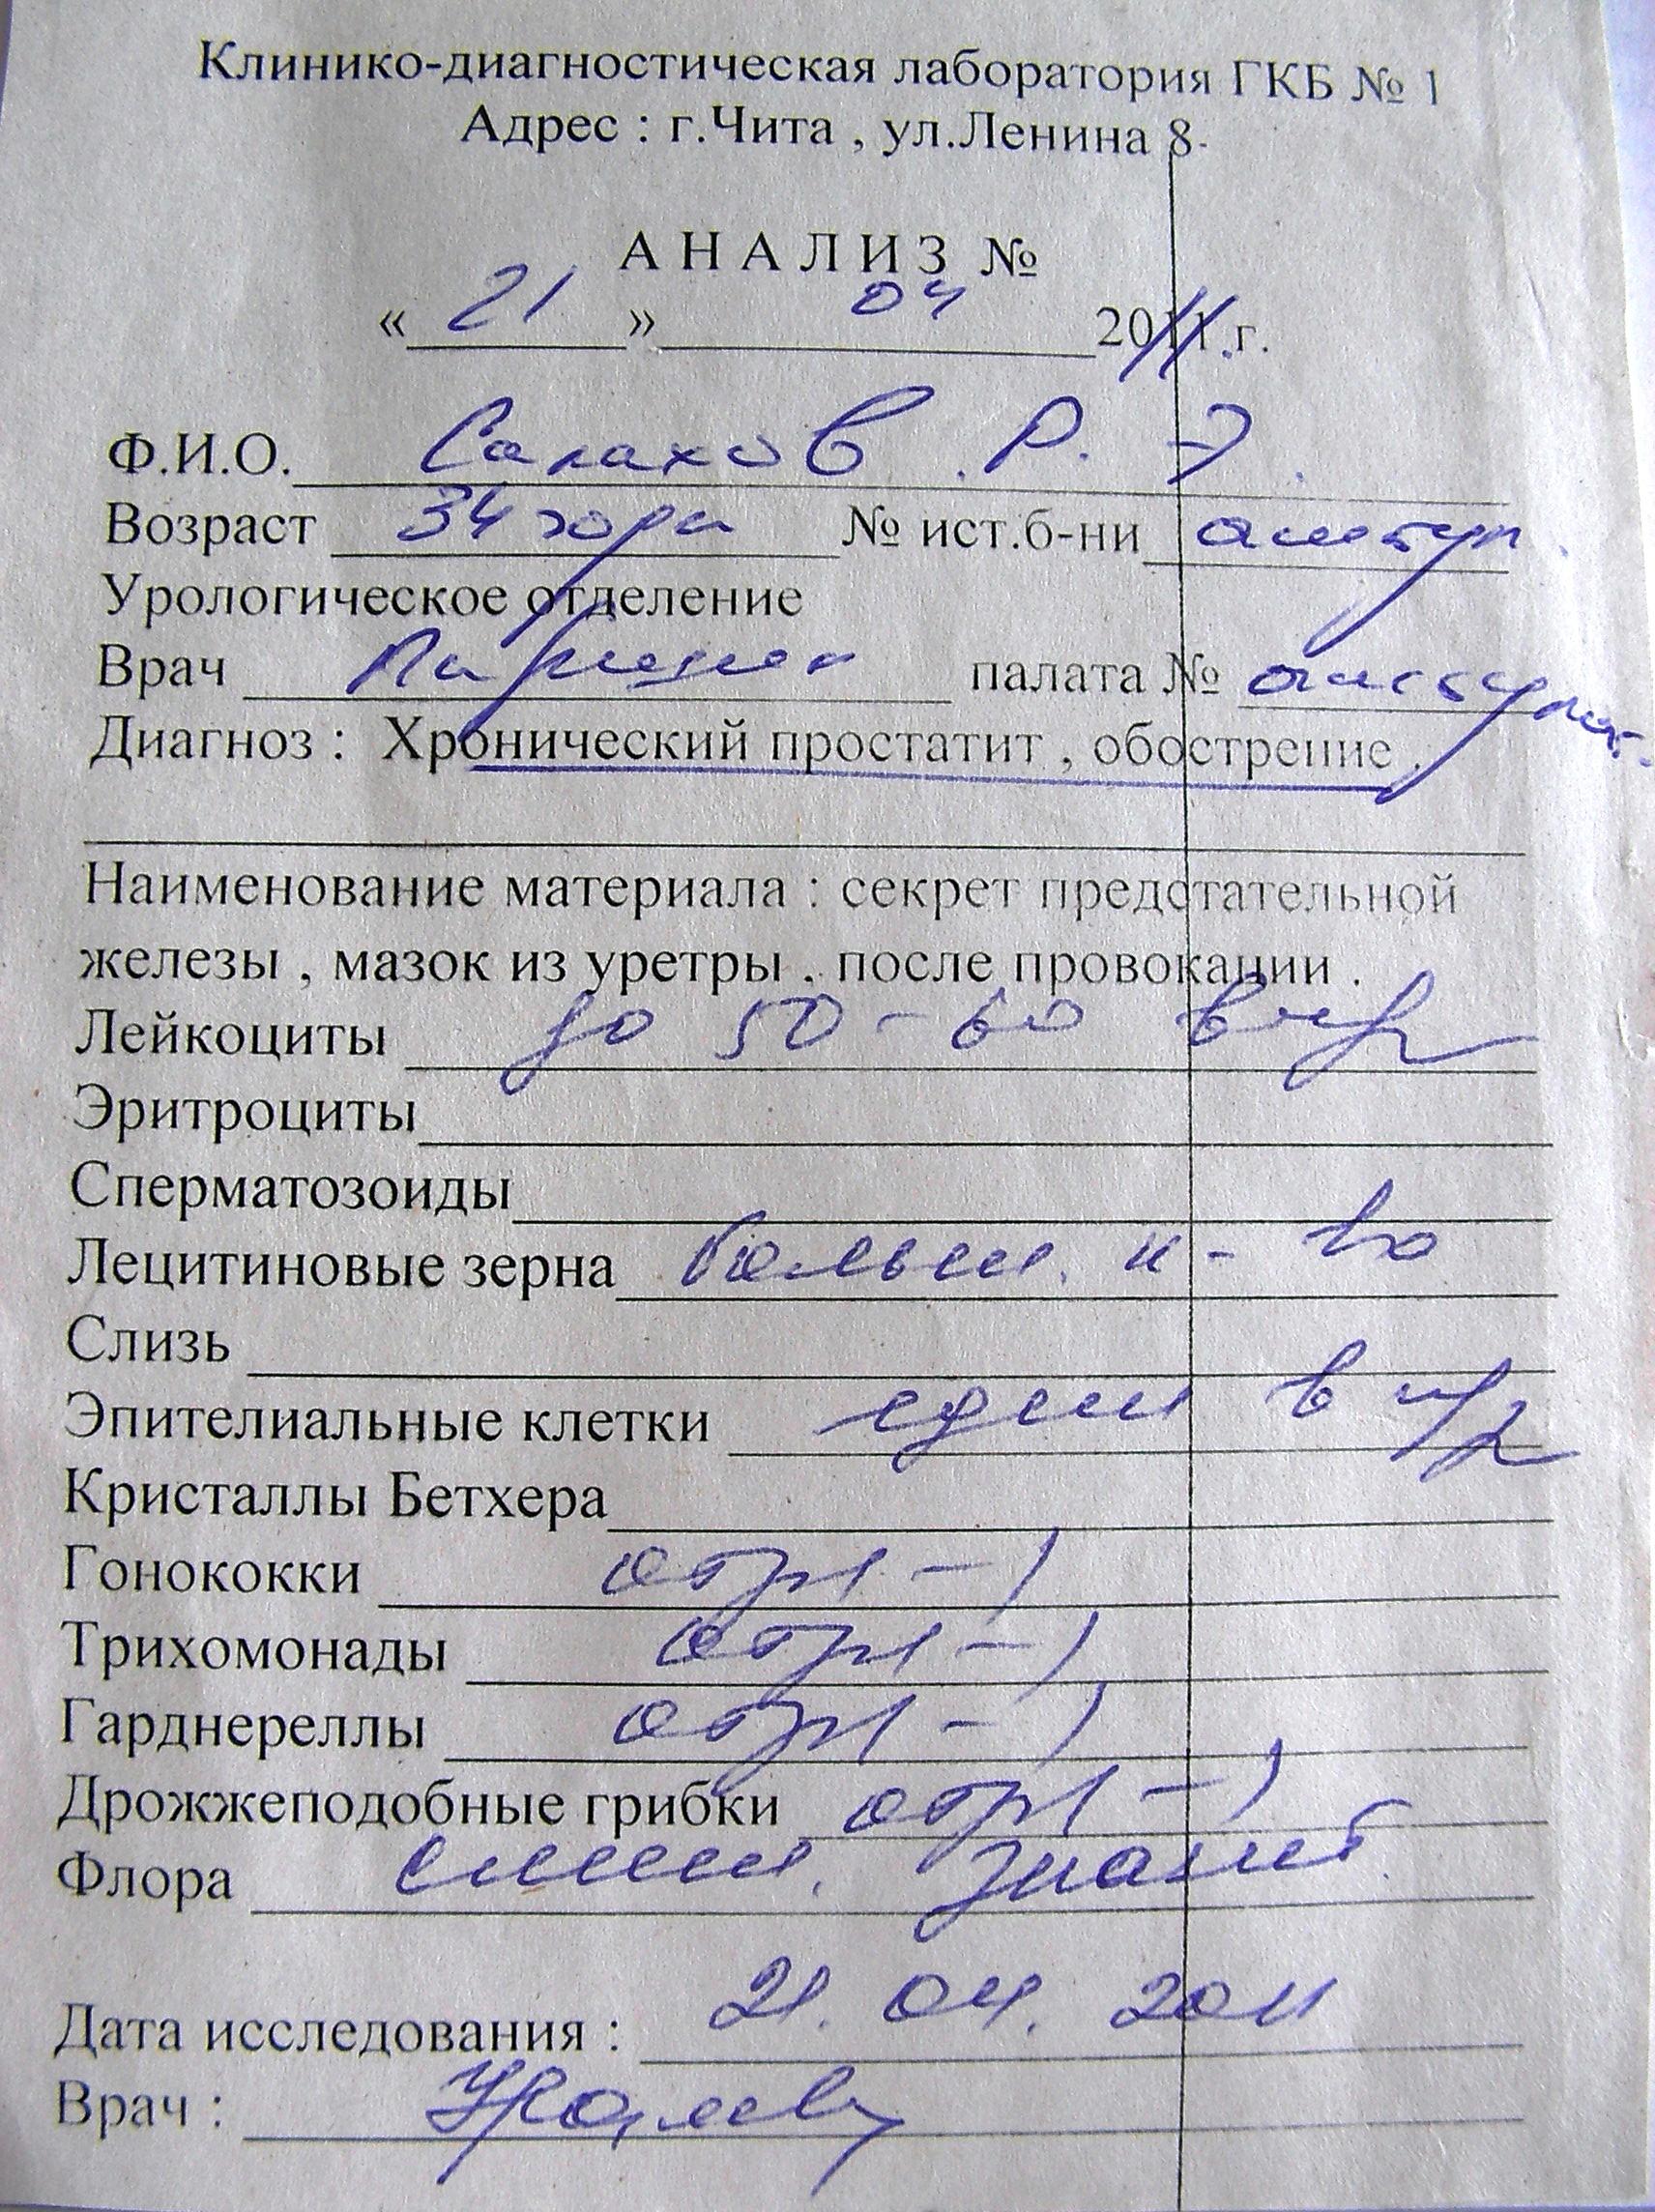 Клинико-диагностическая лаборатория ГКБ № 1
Адрес : г.Чита , ул.Ленина 8
АНАЛИЗ №
« 21 » 04 2011 г.
Ф.И.О. Салахов . Р. Э.
Возраст 34 года № ист.б-ни амбул.
Урологическое отделение
Врач палата № амбулат.
Диагноз : Хронический простатит , обострение .
Наименование материала : секрет предстательной
железы , мазок из уретры , после провокации .
Лейкоциты до 50 - 60 в п/з
Эритроциты
Сперматозоиды
Лецитиновые зерна больш. к - во
Слизь
Эпителиальные клетки един в п/з
Кристаллы Бетхера
Гонококки отр (-)
Трихомонады отр (-)
Гарднереллы отр (-)
Дрожжеподобные грибки отр (-)
Флора смеш. значит.
Дата исследования : 21. 04. 2011
Врач :